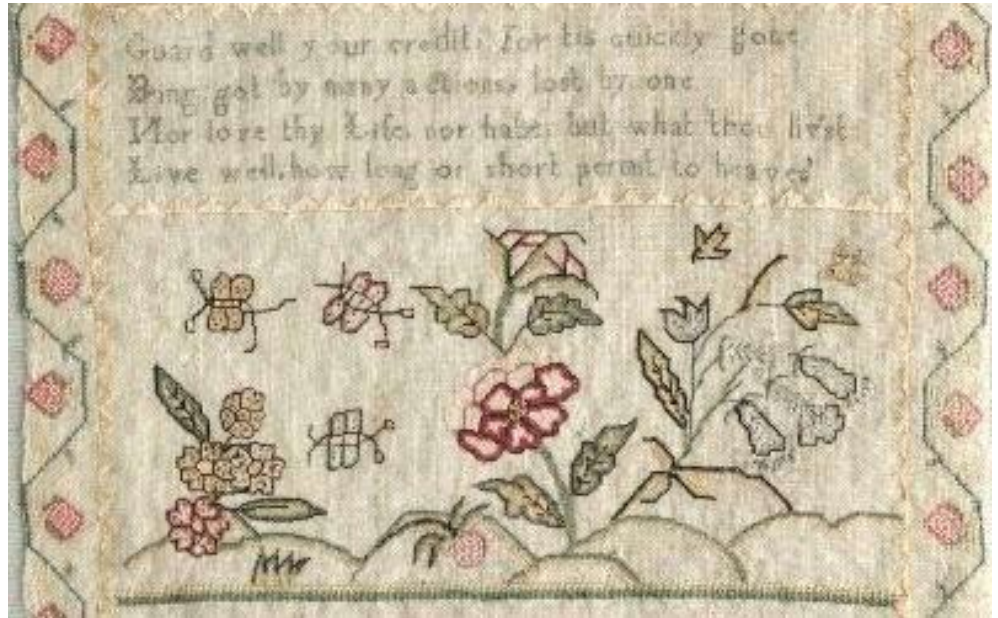 Guard well your credit, for tis quickly gone
Being got by many actions, lost by one
Nor love thy Life, nor hate, but what thou livst
Live well, how long or short permit to heaven